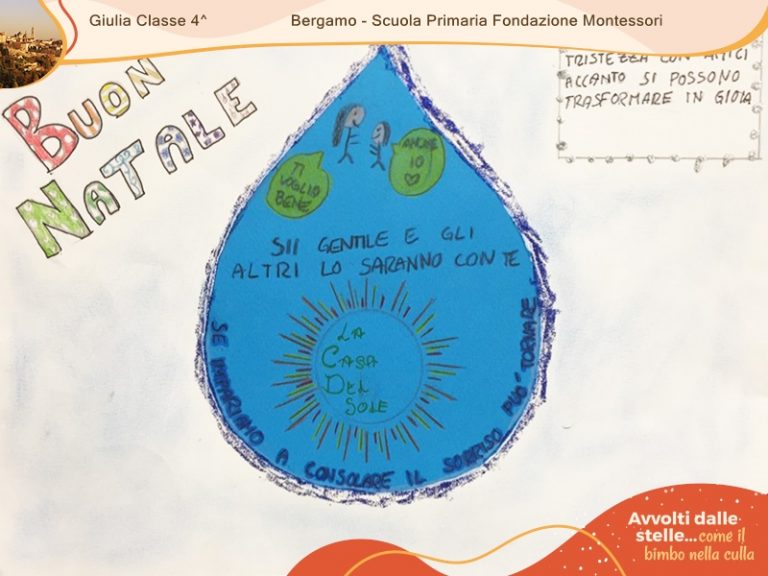 Giulia Classe 4^
Bergamo - Scuola Primaria Fondazione Montessori
BUON
NATALE
TRISTEZZA CON AMICI
ACCANTO SI POSSONO
TRASFORMARE IN GIOIA
TI
VOGLIO
BENE
ANCHE
IO
SII GENTILE E GLI
ALTRI LO SARANNO CON TE
LA
CASA
DEL
SOLE
SE IMPARIAMO A CONSOLARE IL SORRISO PUÒ TORNARE
Avvolti dalle
stelle...come il
bimbo nella culla